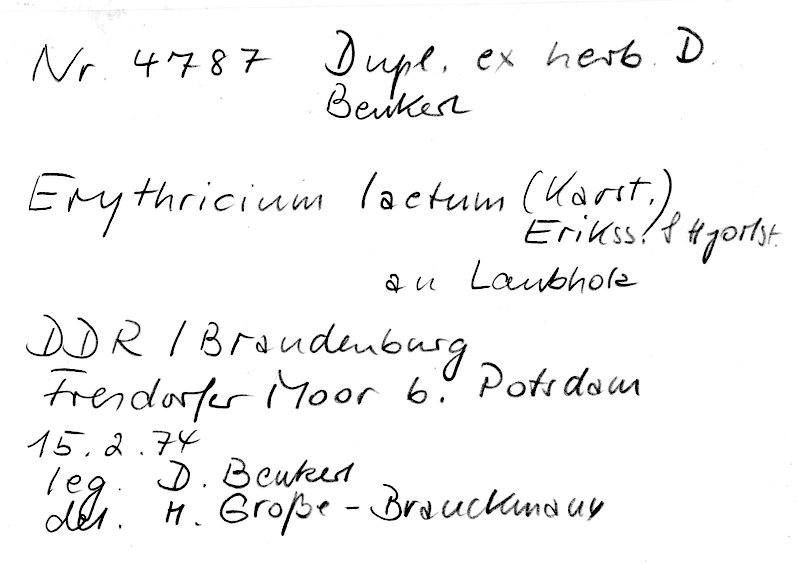 Nr. 4787 Dupl. ex herb. D.
Benkert
Erythricium laetum (Karst.)
Erikss. & Hjortst.
an Laubholz
DDR / Brandenburg
Fresdorfer Moor b. Potsdam
15.2.74
leg. D. Benkert
det. H. Große-Brauckmann